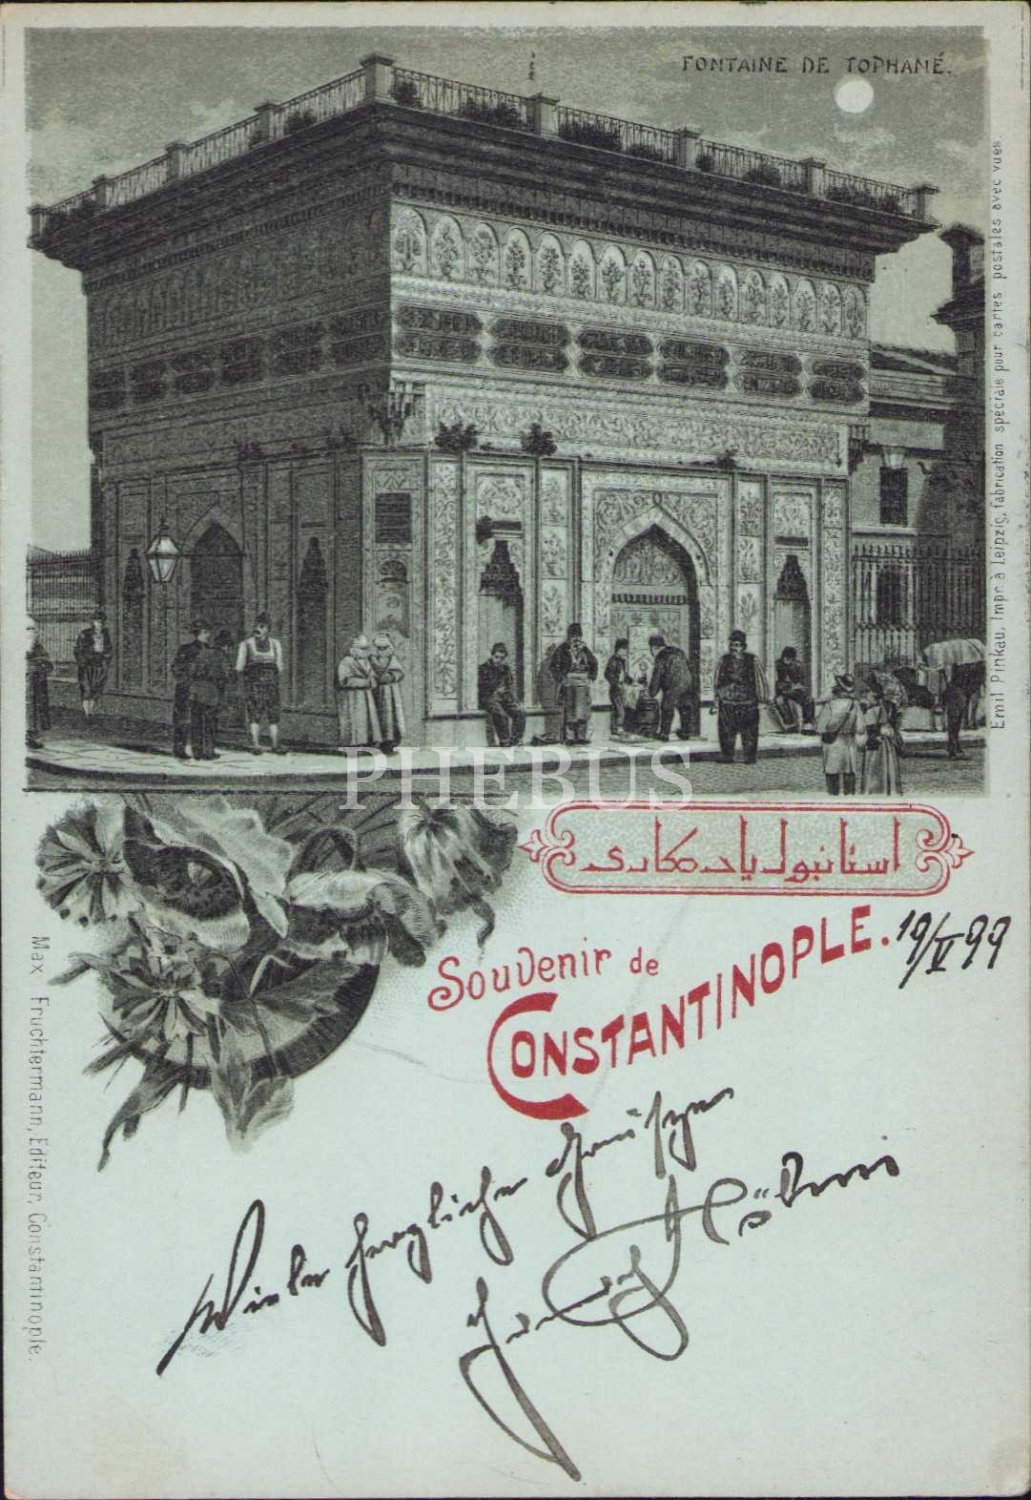 FONTAINE DE TOPHANÉ.
Emil Pinkau, Impr. à Leipzig, fabrication spéciale pour cartes postales avec vues.
PHEBUS
استانبول یادكاری
Souvenir de
CONSTANTINOPLE.
19/V 99
Max Fruchtermann, Editeur, Constantinople.
herzliche